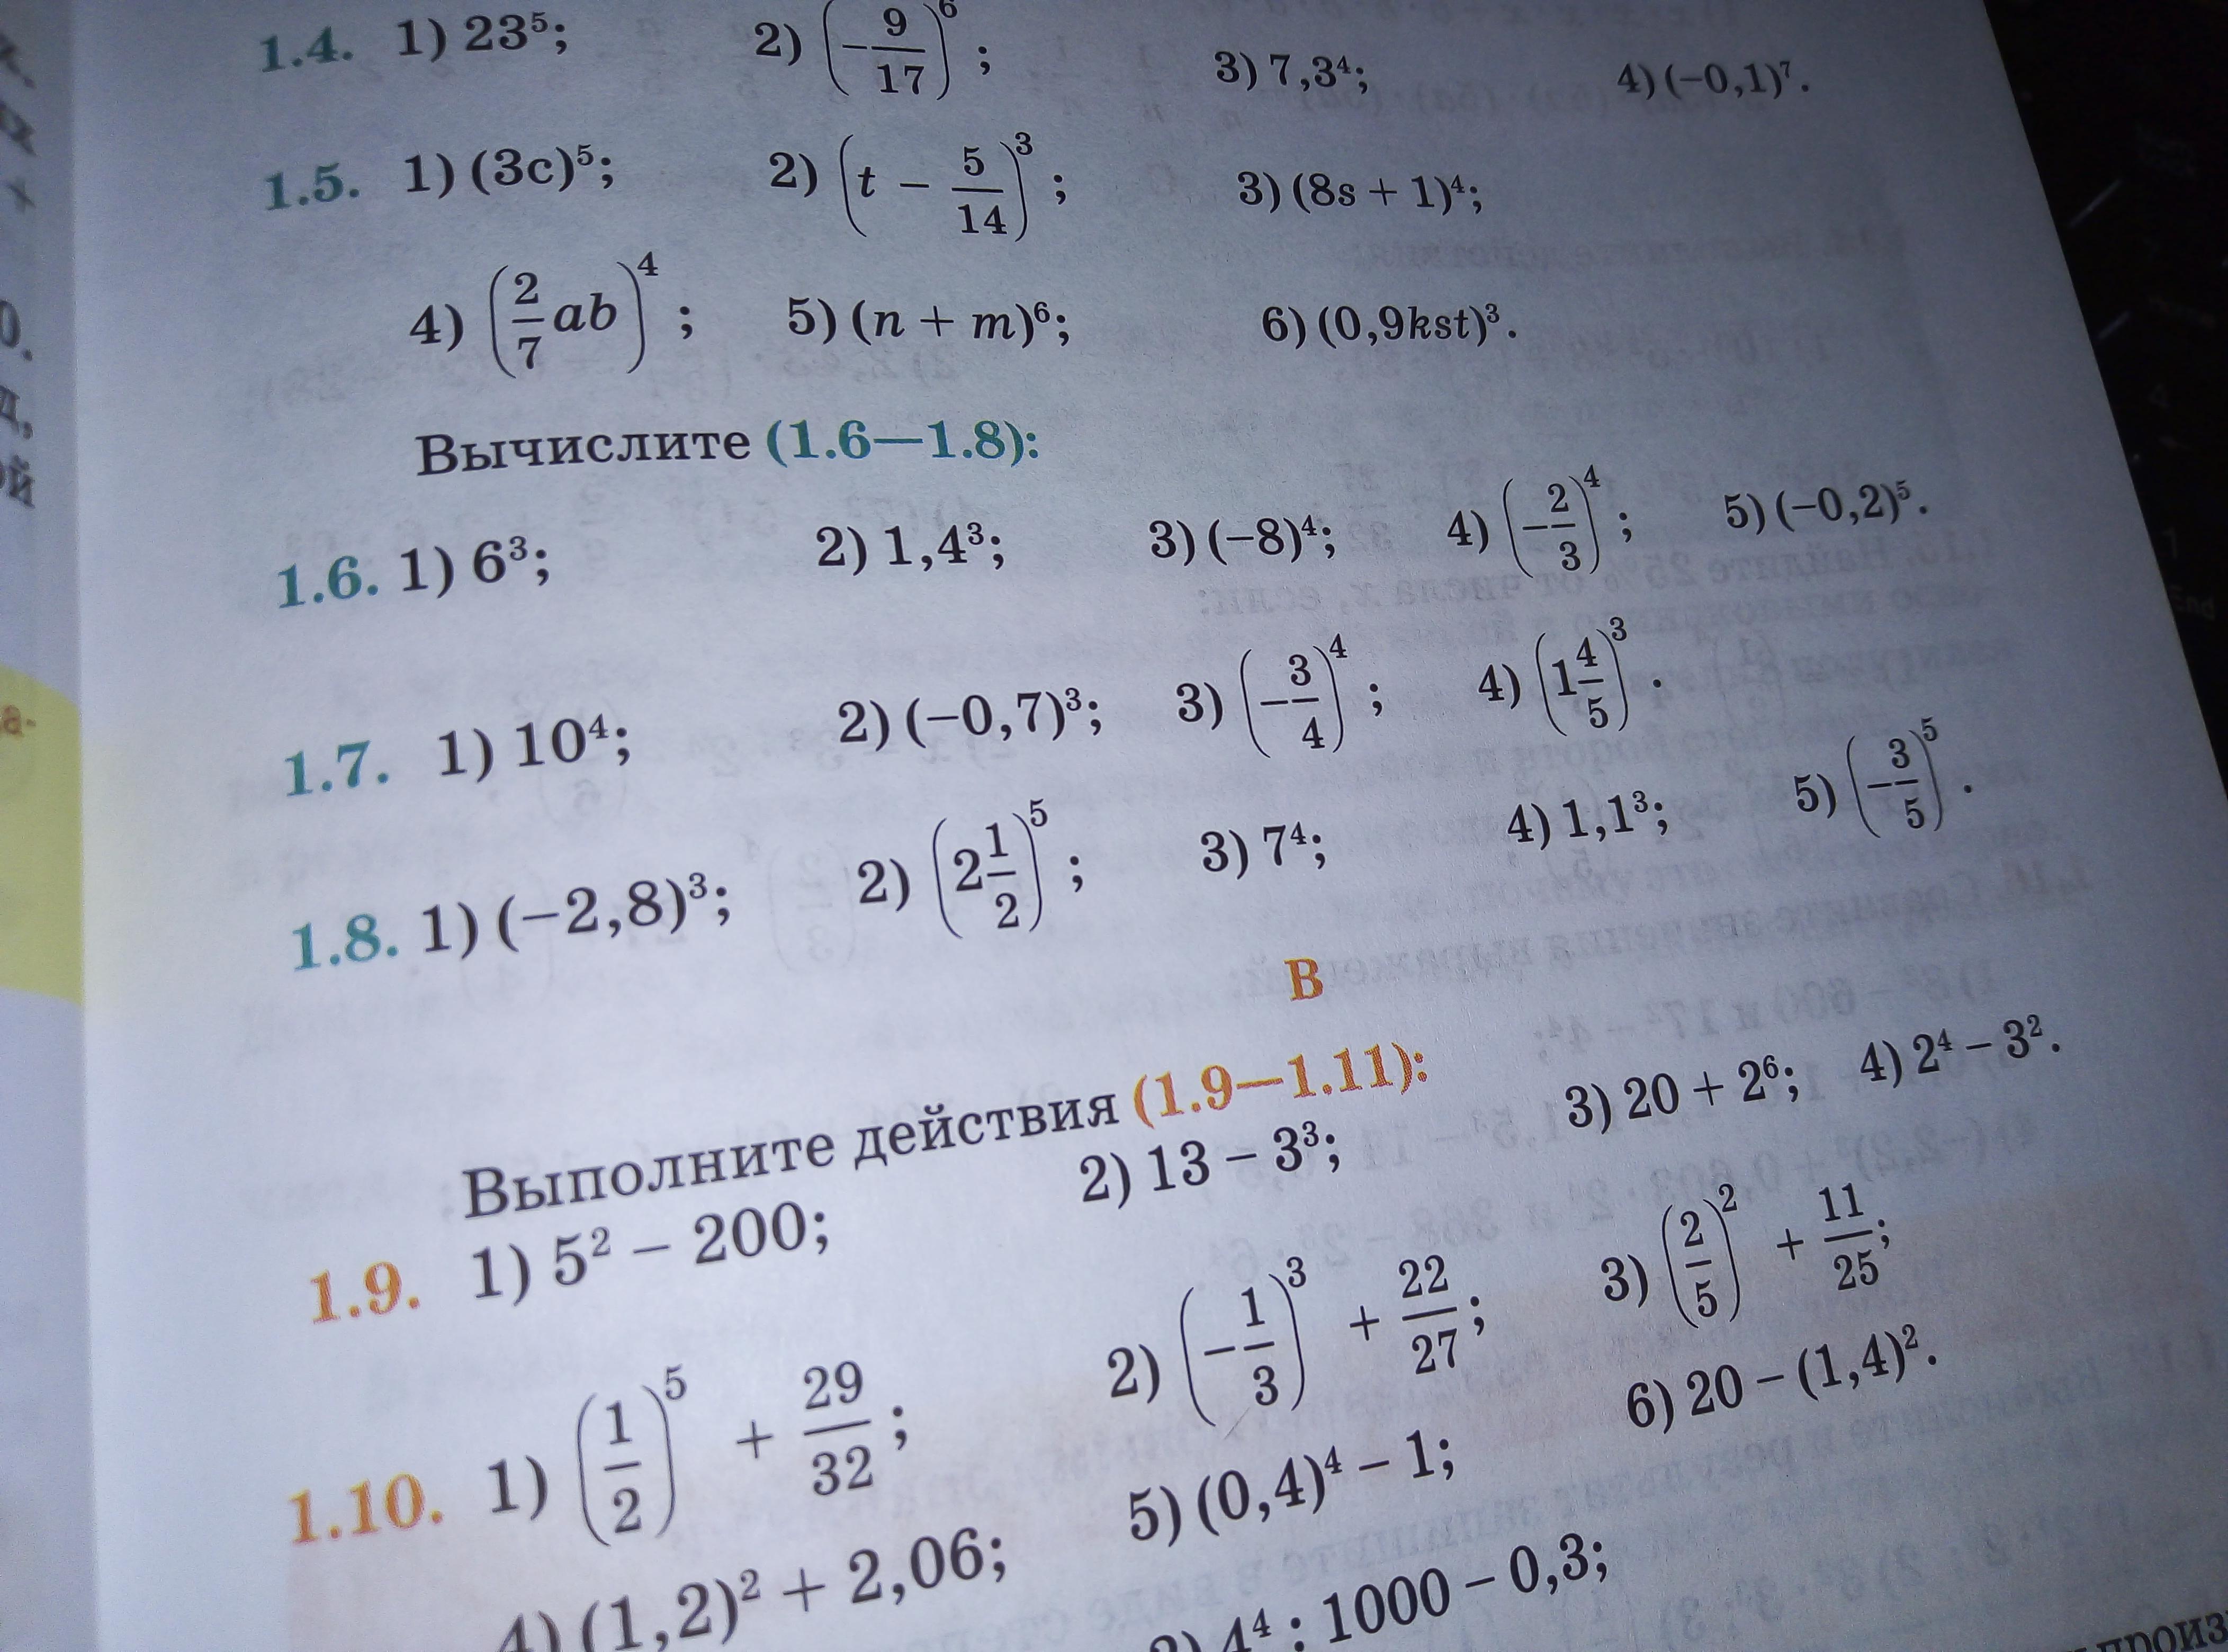 1.4. 1) 23⁵; 2) (−9/17)⁶; 3) 7,3⁴; 4) (−0,1)⁷.
1.5. 1) (3c)⁵; 2) (t − 5/14)³; 3) (8s + 1)⁴;
4) (2/7 ab)⁴; 5) (n + m)⁶; 6) (0,9kst)³.
Вычислите (1.6—1.8):
1.6. 1) 6³; 2) 1,4³; 3) (−8)⁴; 4) (−2/3)⁴; 5) (−0,2)⁵.
1.7. 1) 10⁴; 2) (−0,7)³; 3) (−3/4)⁴; 4) (1 4/5)³.
1.8. 1) (−2,8)³; 2) (2 1/2)⁵; 3) 7⁴; 4) 1,1³; 5) (−3/5)⁵.
В
Выполните действия (1.9—1.11):
1.9. 1) 5² − 200; 2) 13 − 3³; 3) 20 + 2⁶; 4) 2⁴ − 3².
1.10. 1) (1/2)⁵ + 29/32; 2) (−1/3)³ + 22/27; 3) (2/5)² + 11/25;
4) (1,2)² + 2,06; 5) (0,4)⁴ − 1; 6) 20 − (1,4)².
4⁴ : 1000 − 0,3;